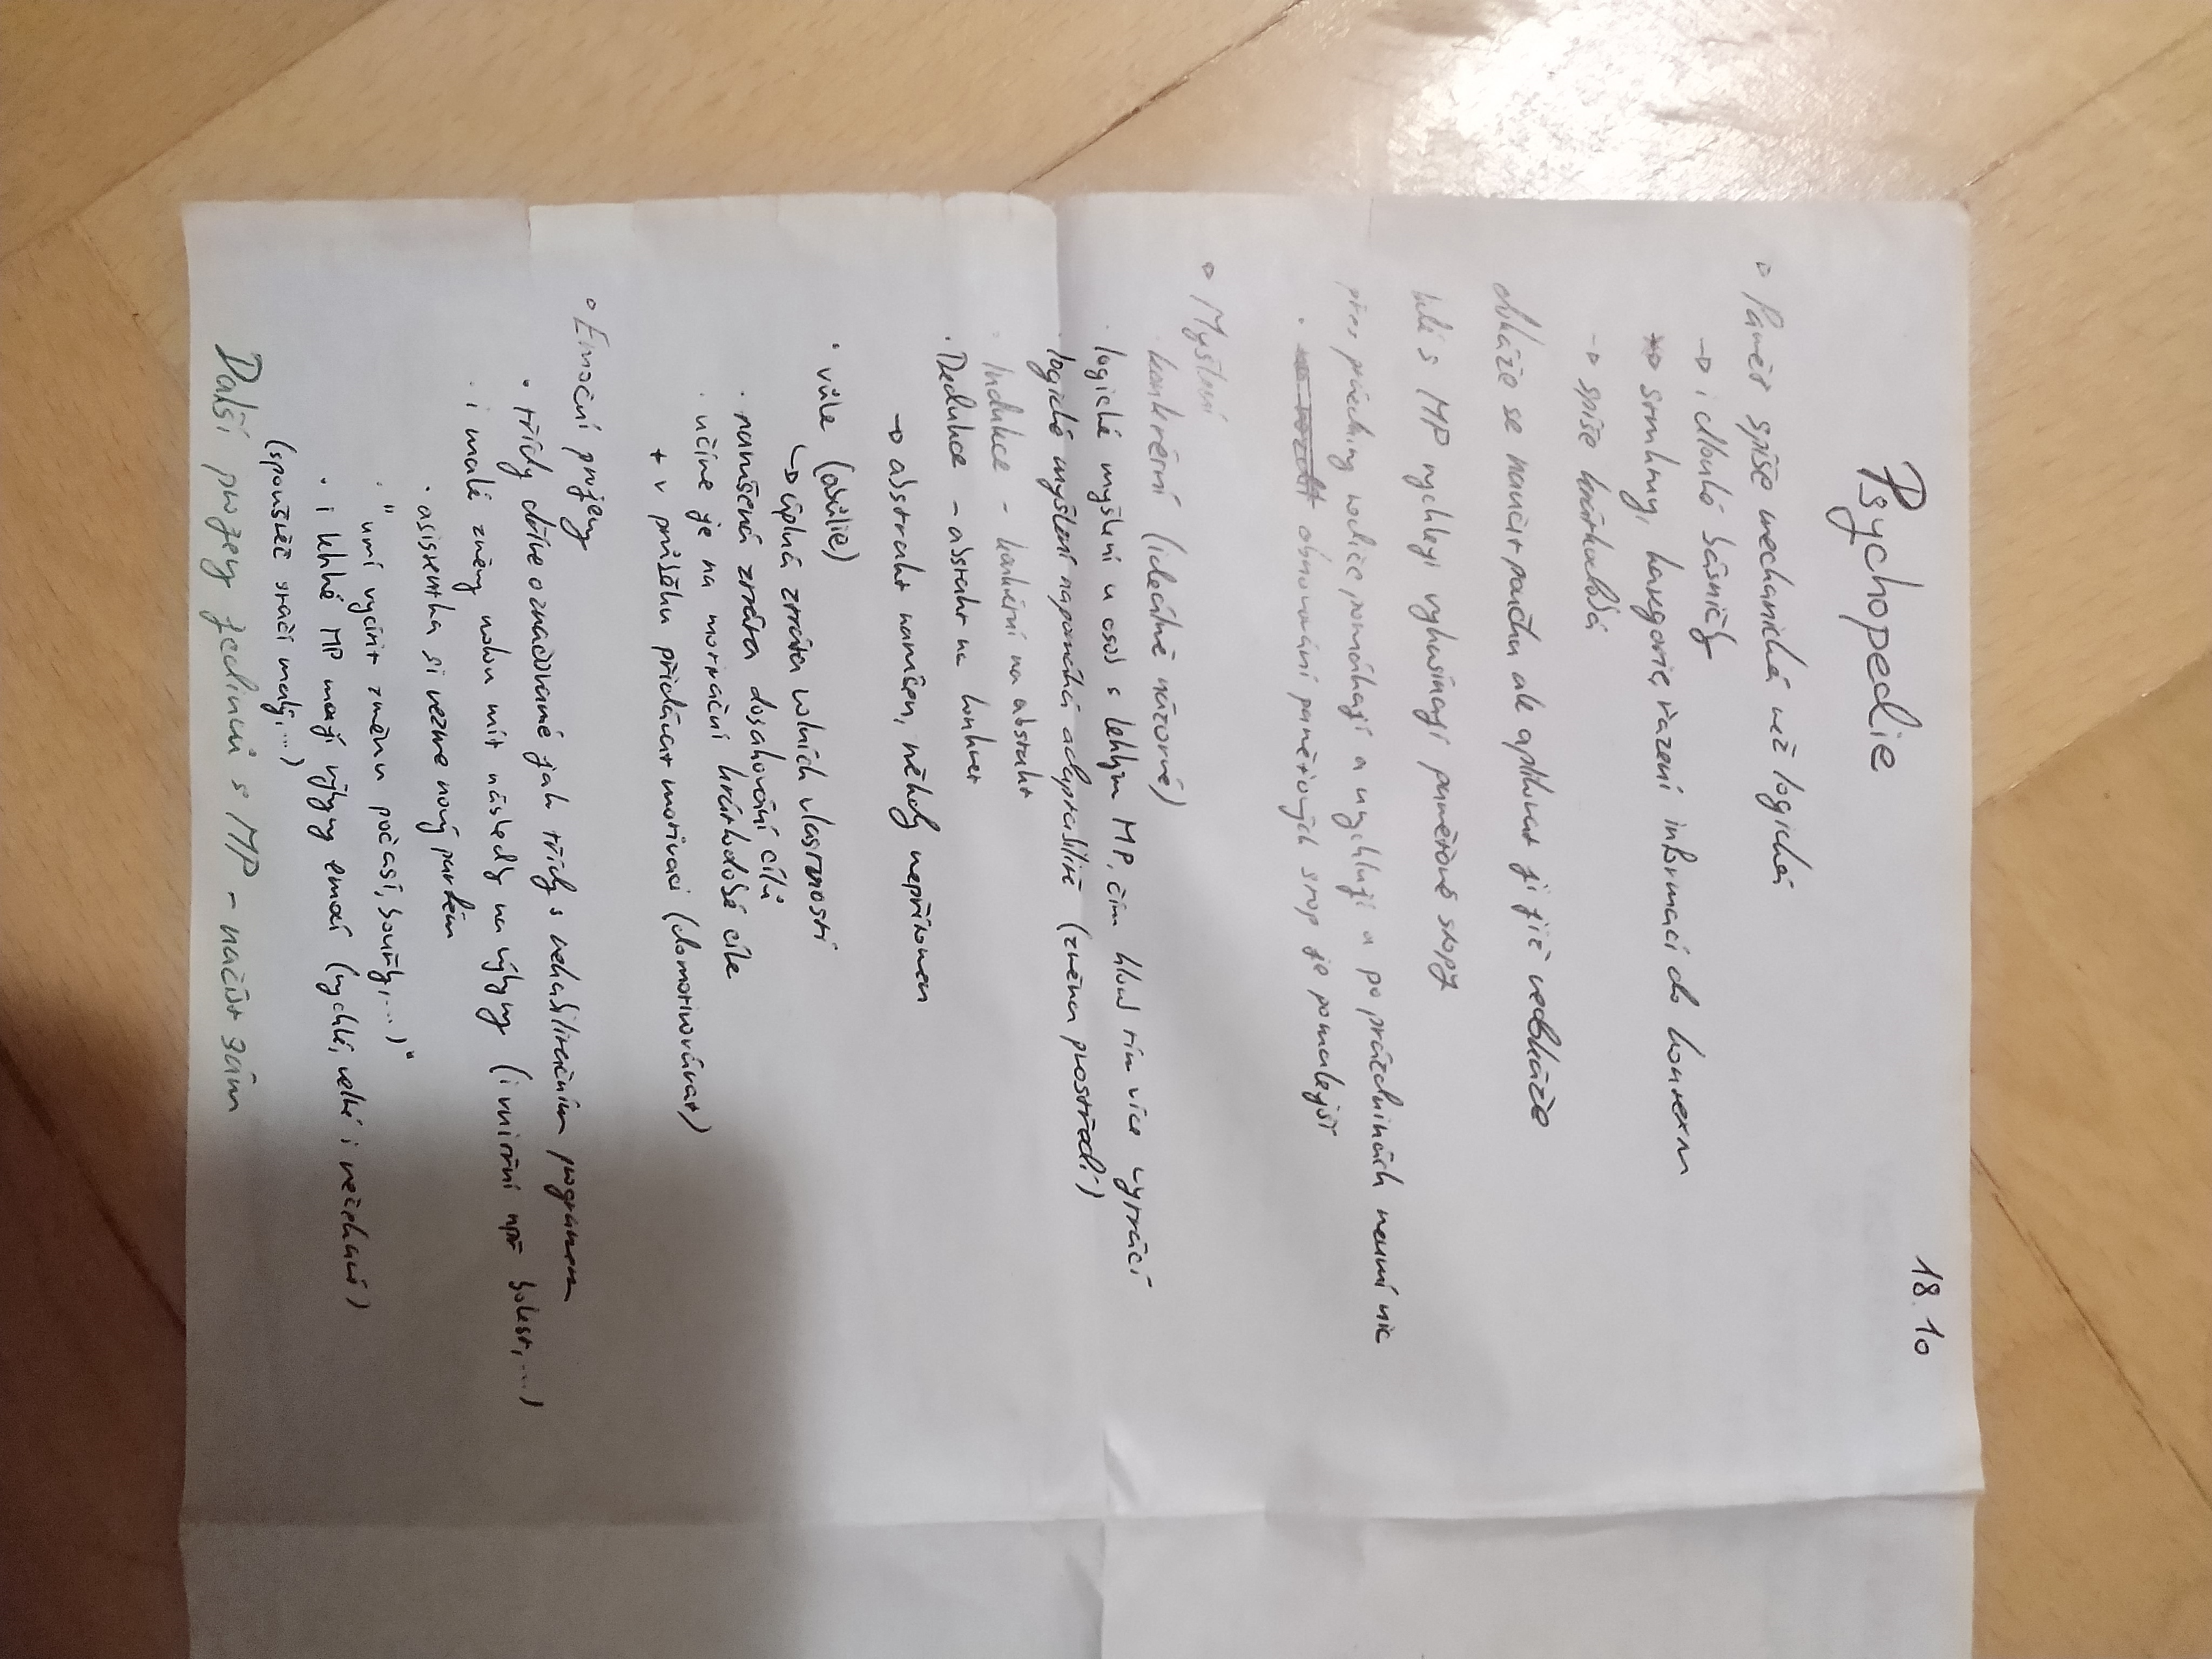 18.10
Psychopedie
Paměť spíše mechanická než logická
→ i dlouhé básničky
→ souhrny, kategorie, řazení informací do kontextu
→ spíše krátkodobá
dokáže se naučit poučku ale aplikovat ji již nedokáže
lidi s MP rychleji vyhasínají paměťové stopy
přes prázdniny rodiče pomáhají a urychlují a po prázdninách neumí nic
· obnovování paměťových stop je pomalejší
Myšlení
· konkrétní (ideálně názorné)
· logické myšlení u osob s lehkým MP, čím hloub tím více vytrácí
· logické myšlení napomáhá adaptabilitě (změna prostředí)
· Indukce - konkrétní na abstrakt
· Dedukce - abstrakt na konkret
→ abstrakt narušen, někdy nepřítomen
· vůle (abúlie)
↳ úplná ztráta volních vlastností
· narušená ztráta dosahování cílů
· učíme je na motivační krátkodobé cíle
+ v průběhu přidávat motivaci (domotivovávat)
Emoční projevy
· třídy dříve označované jak třídy s rehabilitačním programem
· i malé změny mohou mít následky na výkyvy (i vnitřní např bolest,...)
· asistentka si vezme nový parfém
· "umí vycítit změnu počasí, bouřky,...)"
· i lehké MP mají výkyvy emocí (rychlé, velké i nečekané)
(spouštěč stačí malý,...)
Další projevy jedinců s MP - načíst sám